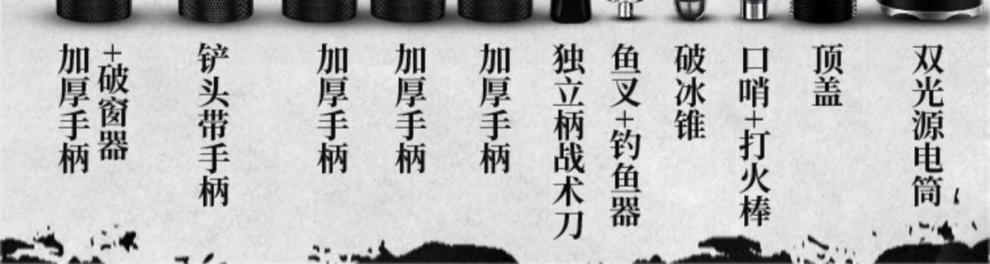 加厚手柄
+破窗器
铲头带手柄
加厚手柄
加厚手柄
加厚手柄
独立柄战术刀
鱼叉+钓鱼器
破冰锥
口哨+打火棒
顶盖
双光源电筒